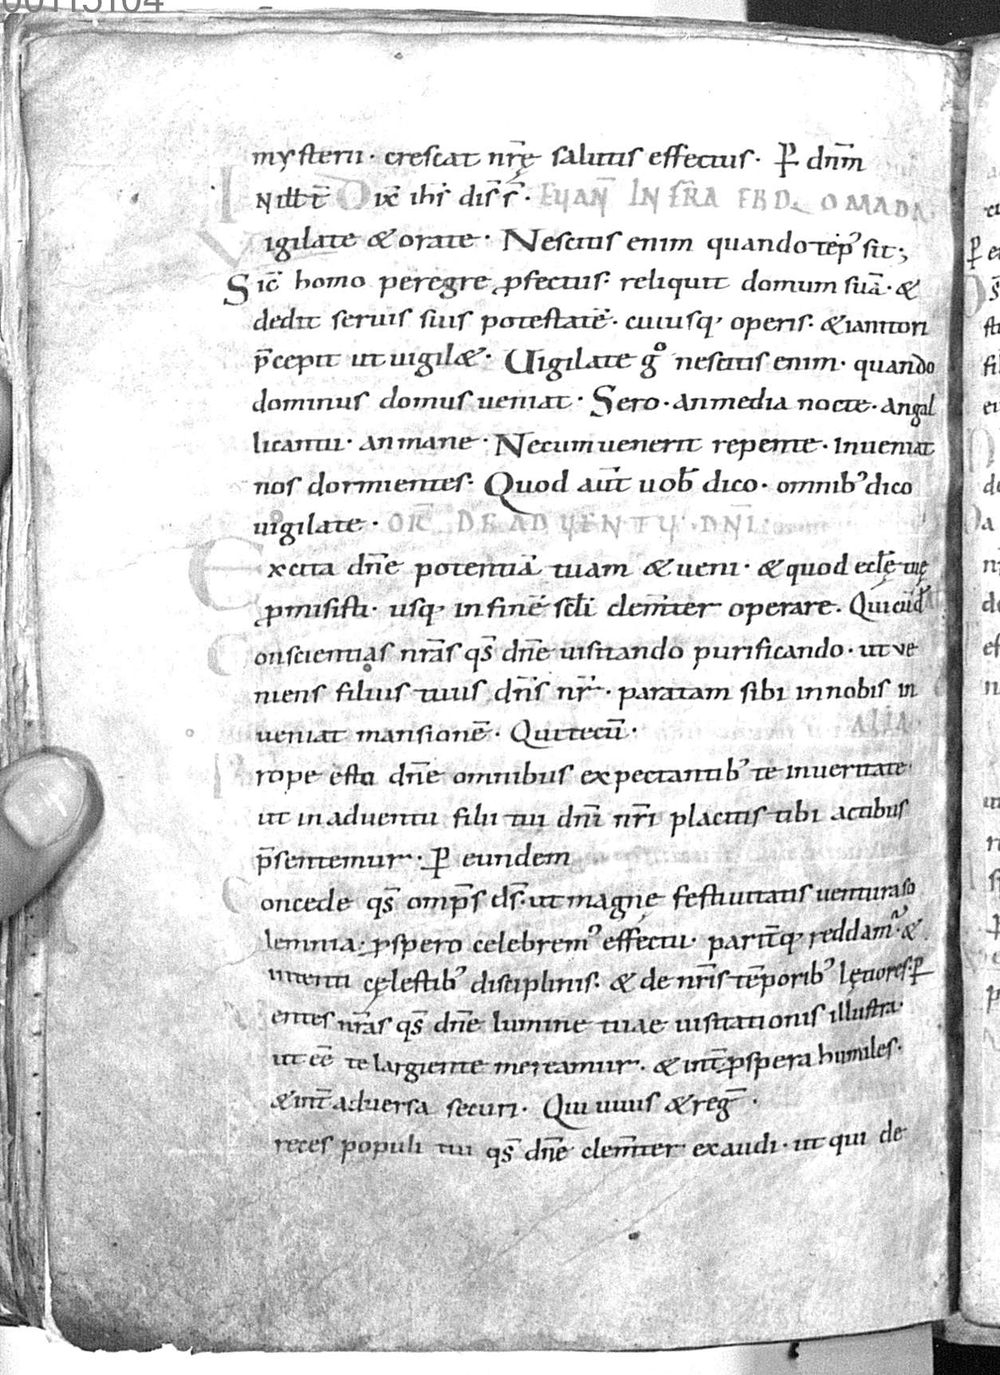 mysterii · crescat nr̄ę salutis effectus · P̄ dnm̄
In ill t̄ Dix̄ ihs̄ dis̄ s̄ · EUAN̄ IN FR̄A EBDOMADA
Vigilate & orate · Nescitis enim quando tēp᾽ sit;
Sic̄ homo peregre ꝓfectus · reliquit domum suā · &
dedit seruis suis potestatē · cuiusq, operis · & ianitori
p̄cepit ut uigil& · Uigilate gº nescitis enim · quando
dominus domus ueniat · Sero · an media nocte · an gal
licantu · an mane · Ne cum uenerit repente · inueniat
nos dormientes · Quod aūt uob̄ dico · omnib᾽ dico
uigilate · OR̄ DE ADUENTU · DNI
Excita dn̄e potentiā tuam & ueni · & quod eccl̄ę tuę
ꝓmisisti · usq, in finē scl̄i clem̄ter operare · Qui
Conscientias nr̄as qs̄ dn̄e uisitando purificando · ut ve
niens filius tuus dn̄s nr̄ · paratam sibi in nobis in
ueniat mansionē · Qui tecū · ALIA
Prope esto dn̄e omnibus expectantib᾽ te in ueritate ·
ut in aduentu filii tui dn̄i nr̄i placitis tibi actibus
p̄sentemur · P̄ eundem
Concede qs̄ omp̄s ds̄ · ut magnę festiuitatis uentura so
lemnia · ꝓspero celebrem᾽ effectu · parit̄q, reddam᾽ &
intenti cęlestib᾽ disciplinis · & de nr̄is tēporib᾽ lętiores · P̄
entes nr̄as qs̄ dn̄e lumine tuae uisitationis illustra ·
ut eē te largiente mereamur · & int̄ ꝓspera humiles ·
& int̄ aduersa securi · Qui uiuis & reḡ ·
reces populi tui qs̄ dn̄e clem̄ter exaudi · ut qui de